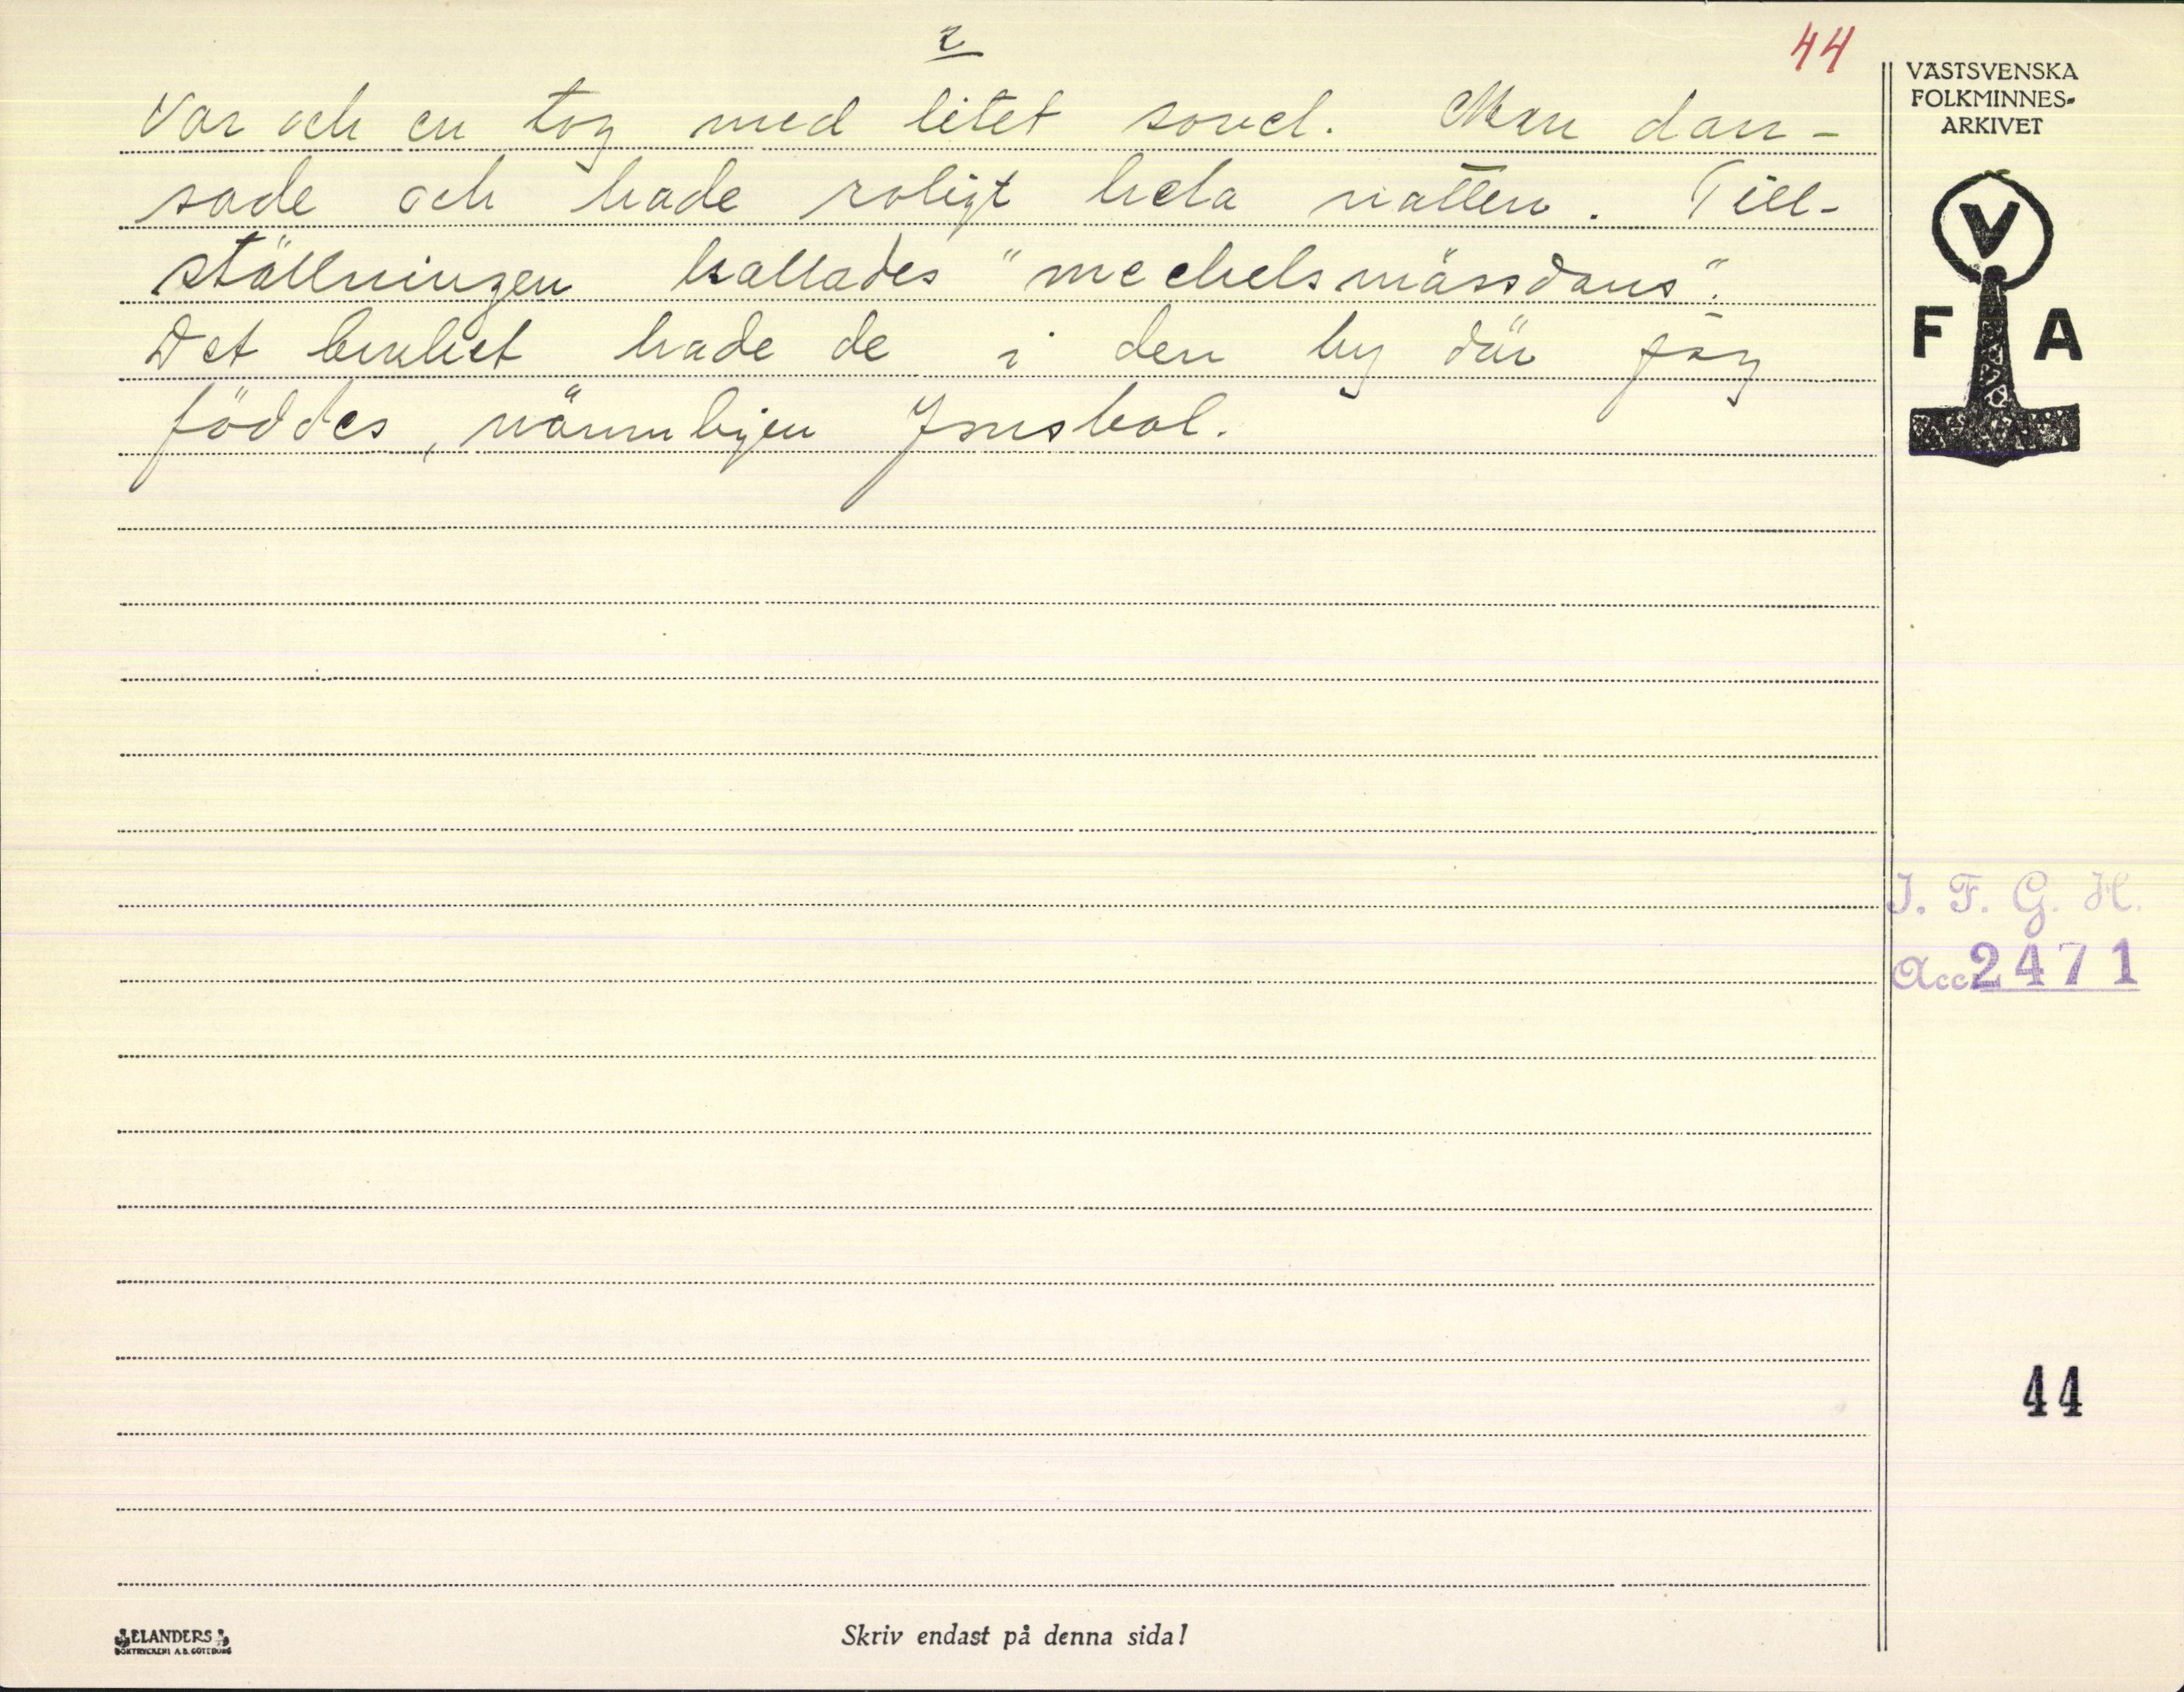 2
44
Var och en tog med litet sovel. Man dan-
sade och hade roligt hela natten. Till-
ställningen kallades "mechelsmässdans".
Det bruket hade de i den by där jag
föddes, nämnligen
VÄSTSVENSKA
FOLKMINNES-
ARKIVET
V
F A
I. F. G. H.
Acc 2471
44
ELANDERS
BOKTRYCKERI A.B. GÖTEBORG
Skriv endast på denna sida!